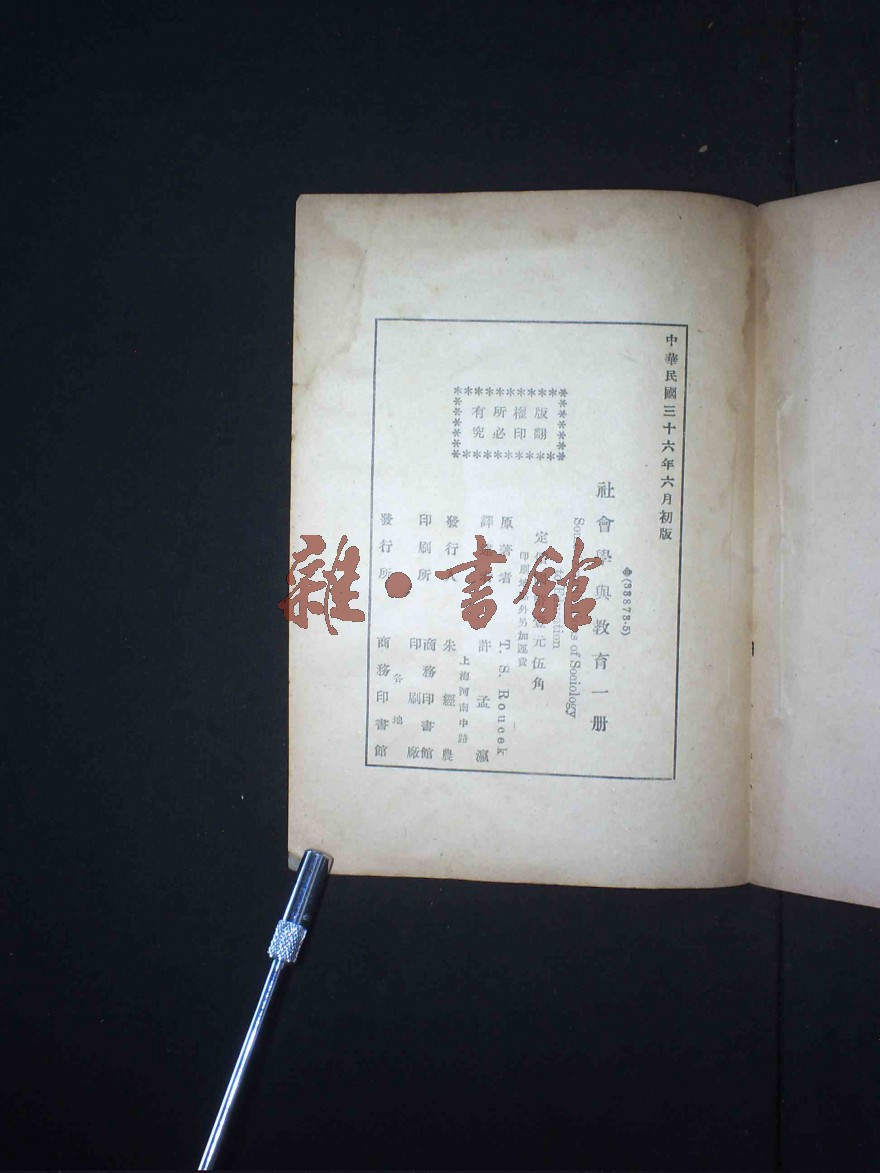 中華民國三十六年六月初版
版權所有
翻印必究
(33873·5)
社會學與教育一册
of Sociology
定 元伍角
印刷 外另加運費
原著者 T. S. Roucek
譯 許孟瀛
發行 朱經農
上海河南中路
印刷所 商務印書館
印刷廠
發行所 各地
商務印書館
雜·書館